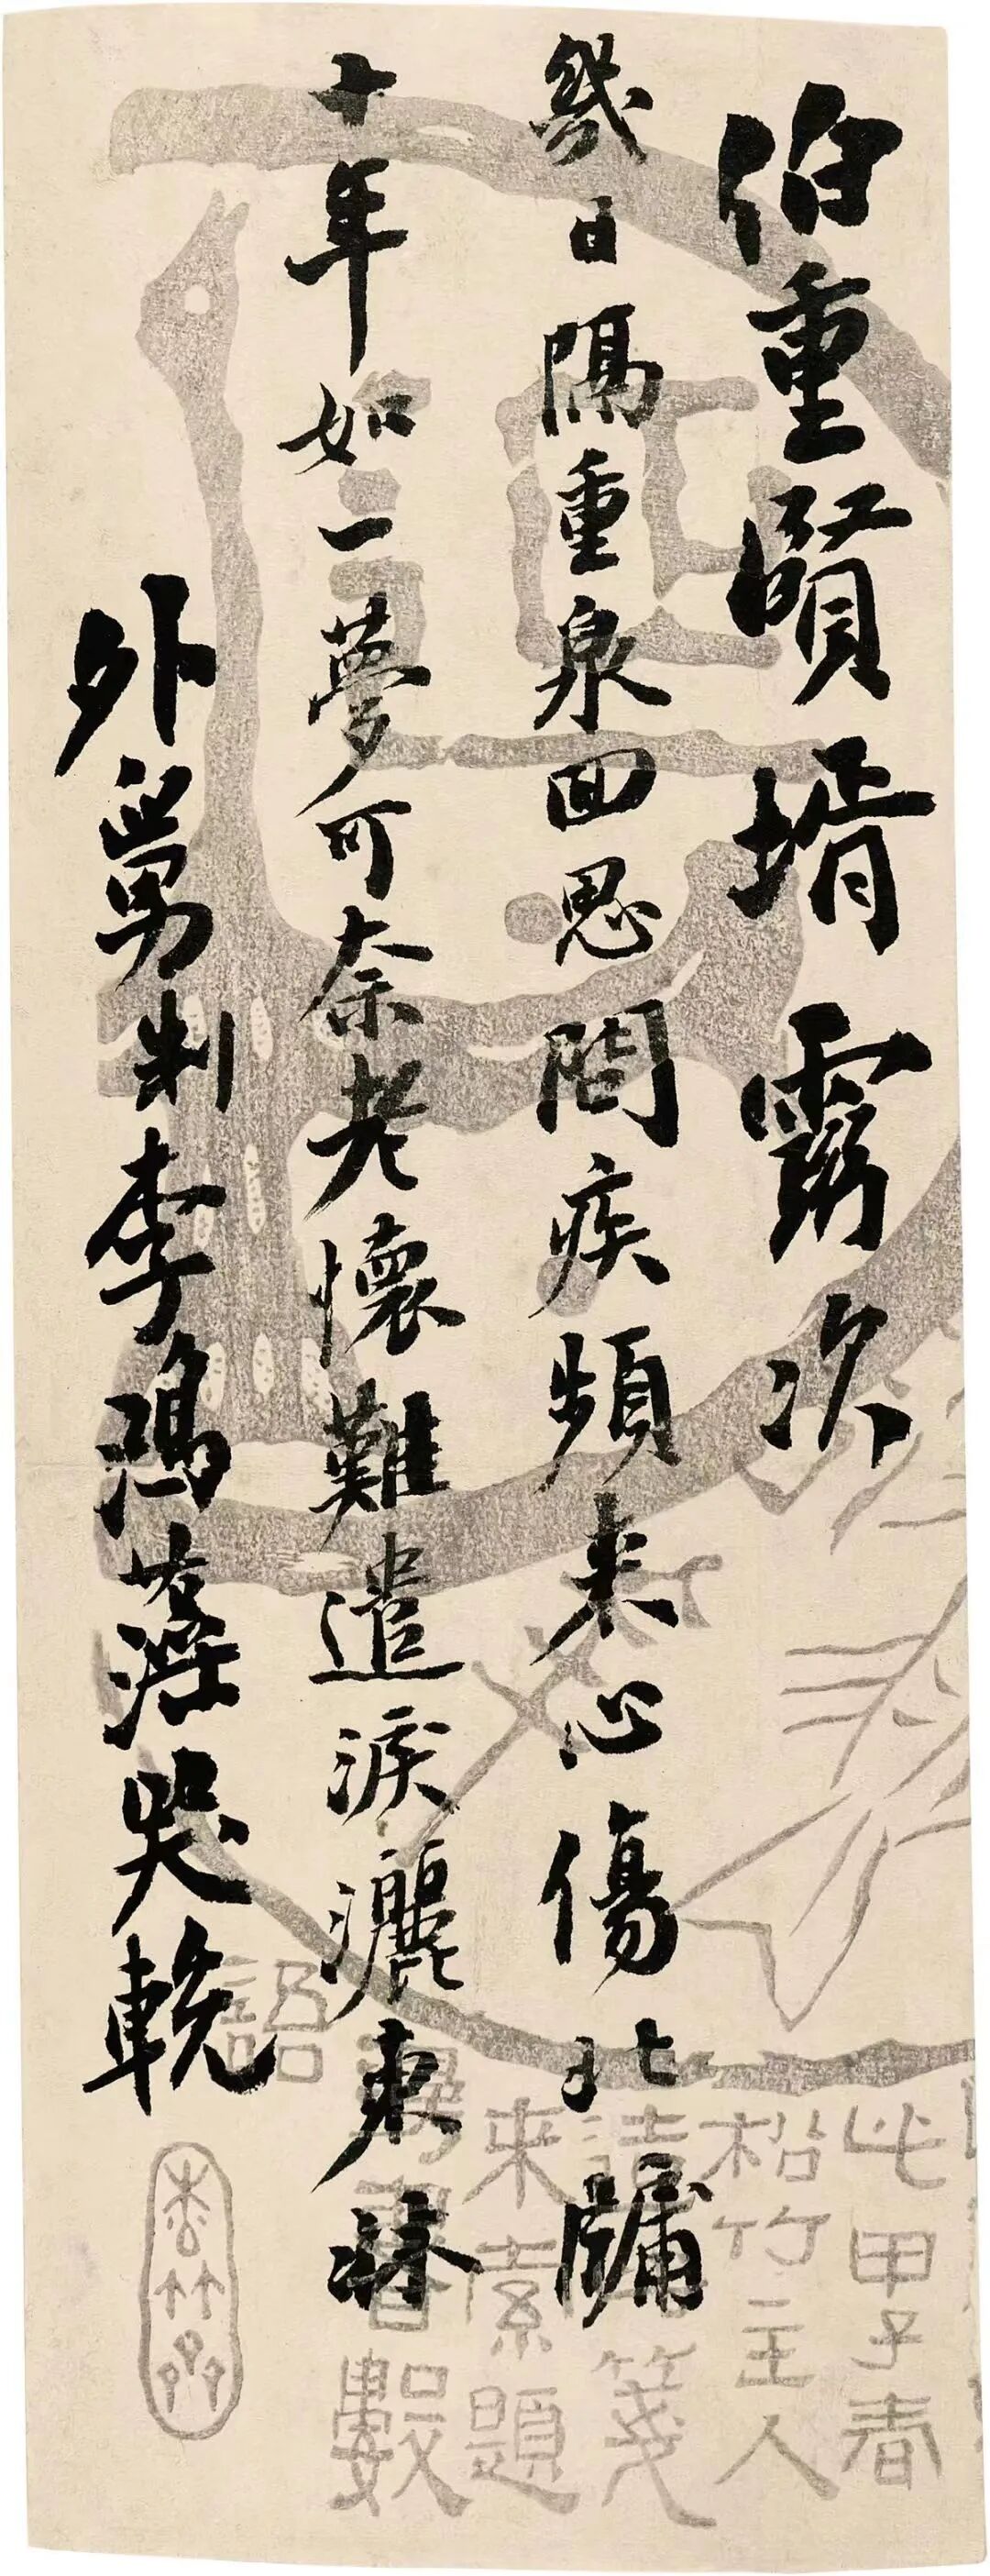 伯重賢壻靈次
幾日隔重泉回思問疾頻來心傷北牖
十年如一夢可奈老懷難遣淚灑東牀
外舅制李鴻藻哭輓
此甲子春
松竹主人
箋
來索題
書數
語
松竹齋